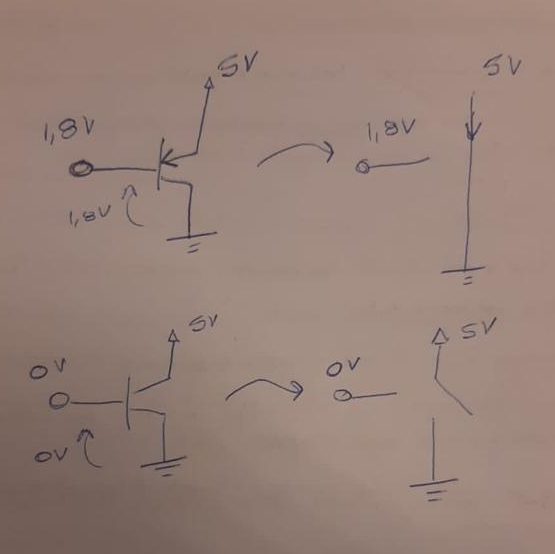 5V
5V
1,8V
1,8V
1,8V
5V
5V
0V
0V
0V